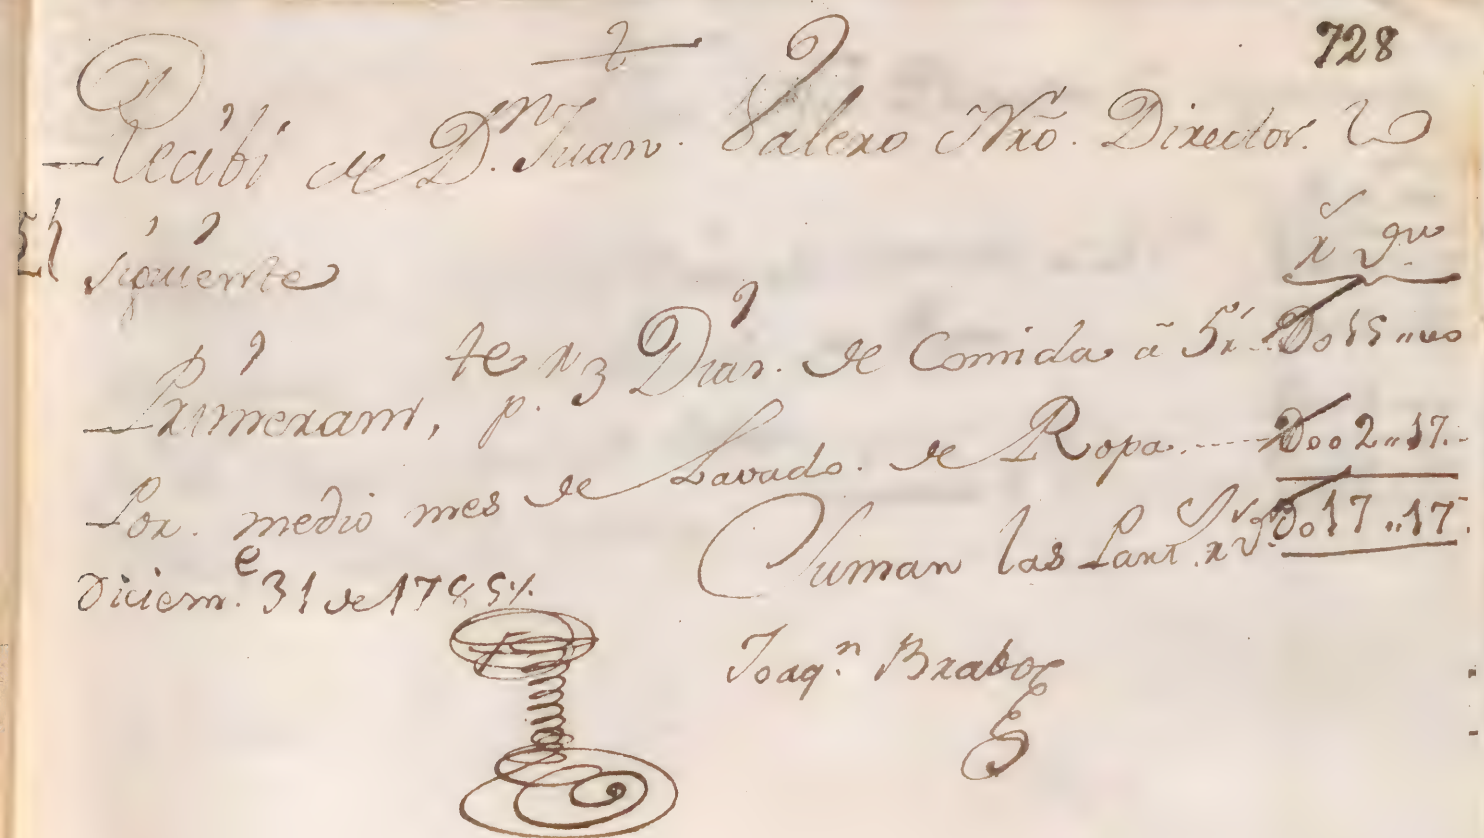 728
Recibi de D.n Juan Valero Nrō. Director. lo
siguiente
r.s qu
Primeram,te p. 3 Dias. de Comida â 5 r.s Do15,,00
Por. medio mes de Lavado. de Ropa......Doo2,,17.
Suman las Part.s r.s v.n Do17,,17.
Diciem.e 31 de 1785%.
Joaq.n Brabo